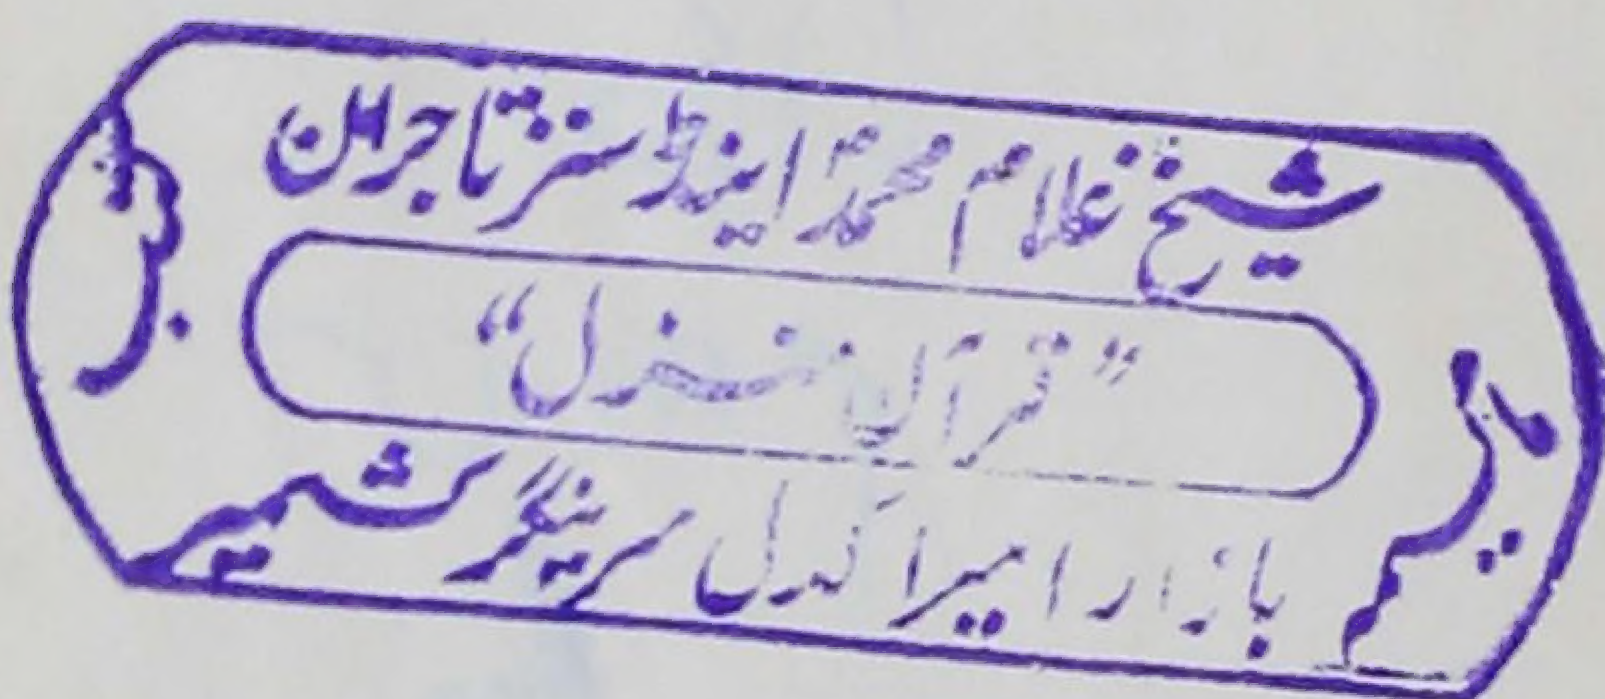 شیخ غلام محمد اینڈ سنز تاجران
”قرآن منزل“
بازار امیراکدل سرینگر کشمیر